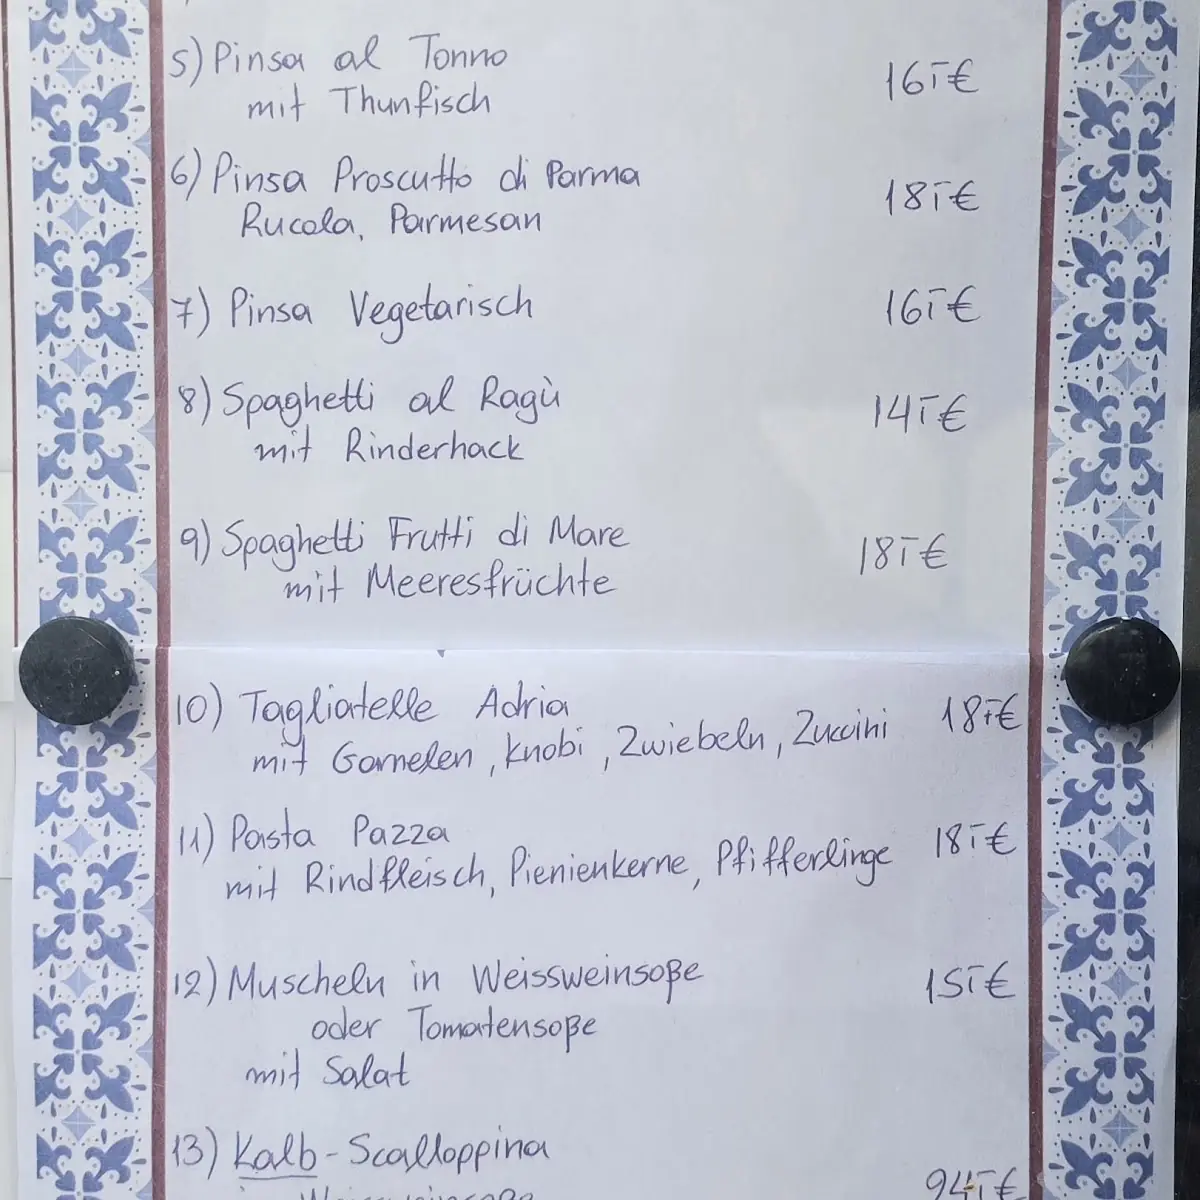 5) Pinsa al Tonno
mit Thunfisch 16,-€
6) Pinsa Proscutto di Parma
Rucola, Parmesan 18,-€
7) Pinsa Vegetarisch 16,-€
8) Spaghetti al Ragù
mit Rinderhack 14,-€
9) Spaghetti Frutti di Mare
mit Meeresfrüchte 18,-€
10) Tagliatelle Adria 18,-€
mit Garnelen, Knobi, Zwiebeln, Zuccini
11) Pasta Pazza 18,-€
mit Rindfleisch, Pienienkerne, Pfifferlinge
12) Muscheln in Weissweinsoße 15,-€
oder Tomatensoße
mit Salat
13) Kalb-Scalloppina